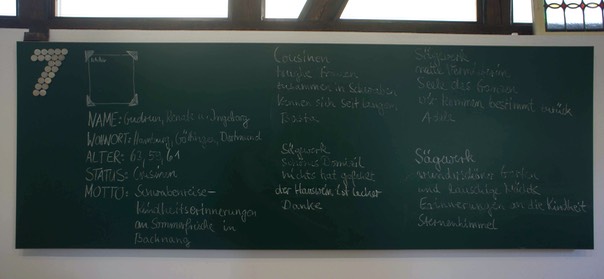 7
NAME: Gudrun, Renate u. Ingeborg
WOHNORT: Hamburg, Göttingen, Dortmund
ALTER: 63, 59, 61
STATUS: Cousinen
MOTTO: Schwabenreise-
kindheitserinnerungen
an Sommerfrische in
Backnang
Cousinen
Frauen
zusammen in Schwaben
kennen sich seit langem
Sägewerk
unser Domizil
nichts hat gefehlt
der Hauswein ist lecker
Danke
Sägewerk
Seele des Ganzen
Wir kommen bestimmt zurück
Adele
Sägewerk
wunderschöner Garten
und lauschige Plätze
Erinnerungen an die Kindheit
Sternenhimmel